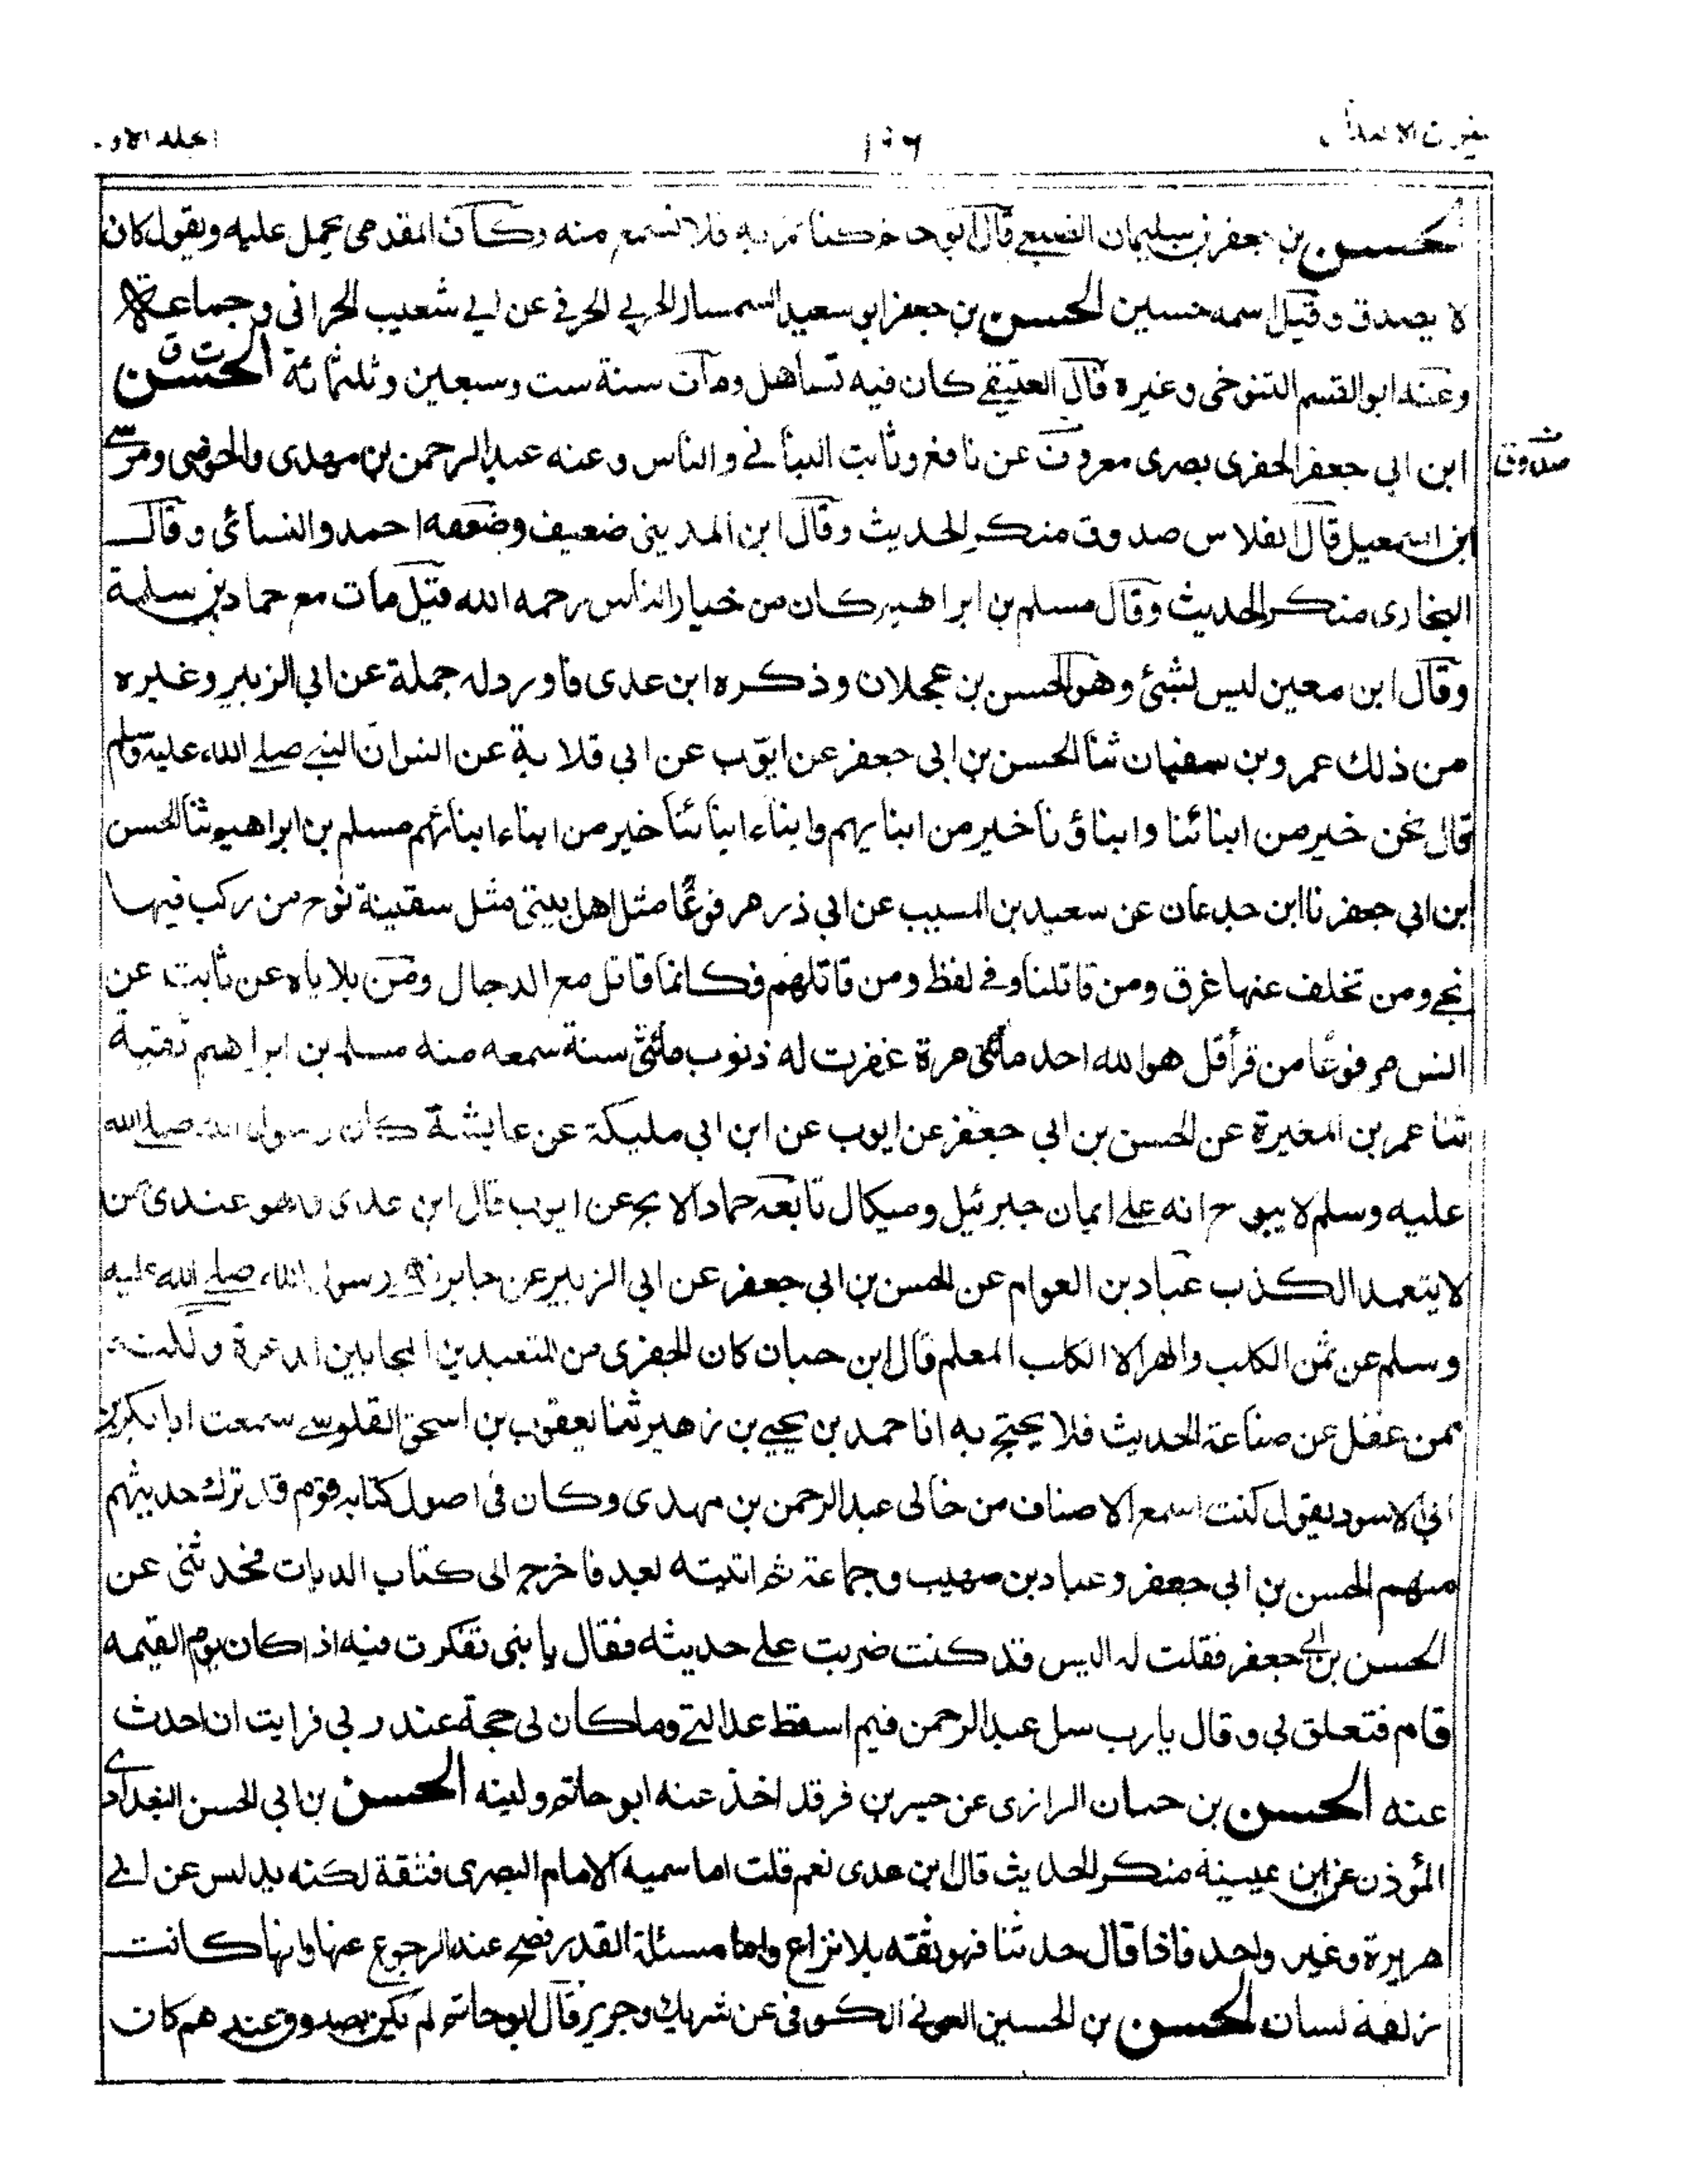 ميزان الاعتدال ۱۰۶ الجلد الاول
الحسن بن جعفر بن سليمان الضبعي قال ابو حاتم كنا نمر به فلا نسمع منه وكان المقدمي يحمل عليه ويقول كان
لا يصدق وقيل اسمه حسين الحسن بن جعفر ابو سعيد السمسار الحربي الحرفي عن ابي شعيب الحراني وجماعة
وعنه ابو القسم التنوخي وغيره قال العتيقي كان فيه تساهل ومات سنة ست وسبعين وثلثمائة الحسن ت ق
ابن ابي جعفر الجفري بصرى معروف عن نافع وثابت البناني والناس وعنه عبد الرحمن بن مهدى والحوضى وموسى
صدوق
ابن اسمعيل قال الفلاس صدوق منكر الحديث وقال ابن المديني ضعيف وضعفه احمد والنسائى وقال
البخارى منكر الحديث وقال مسلم بن ابراهيم كان من خيار الناس رحمه الله قيل مات مع حماد بن سلمة
وقال ابن معين ليس بشئ وهو الحسن بن عجلان وذكره ابن عدى فاورد له جملة عن ابي الزبير وغيره
من ذلك عمرو بن سفيان ثنا الحسن بن ابي جعفر عن ايوب عن ابي قلابة عن انس ان النبي صلى الله عليه وسلم
قال نحن خير من ابنائنا وابناؤنا خير من ابنايهم وابناء ابنائنا خير من ابناء ابنائهم مسلم بن ابراهيم ثنا الحسن
ابن ابي جعفر نا ابن جدعان عن سعيد بن المسيب عن ابي ذر مرفوعًا مثل اهل بيتي مثل سفينة نوح من ركب فيها
نجى ومن تخلف عنها غرق ومن قاتلنا وفي لفظ ومن قاتلهم فكانما قاتل مع الدجال ومن بلاياه عن ثابت عن
انس مرفوعًا من قرأ قل هو الله احد مائتي مرة غفرت له ذنوب مائتي سنة سمعه منه مسلم بن ابراهيم بقية
ثنا عمر بن المغيرة عن الحسن بن ابي جعفر عن ايوب عن ابن ابي مليكة عن عايشة كان رسول الله صلى الله
عليه وسلم لا يبوح انه على ايمان جبرئيل وميكال تابعه حماد الابح عن ايوب قال ابن عدى وهو عندى ممن
لا يتعمد الكذب عباد بن العوام عن الحسن بن ابي جعفر عن ابي الزبير عن جابر نهى رسول الله صلى الله عليه
وسلم عن ثمن الكلب والهر الا الكلب المعلم قال ابن حبان كان الجفرى من المتعبدين المجابين الدعوة ولكنه
ممن غفل عن صناعة الحديث فلا يحتج به انا حمد بن يحيى بن زهير ثنا يعقوب بن اسحق القلوسى سمعت ابا بكر بن
ابي الاسود يقول كنت اسمع الاصناف من خالى عبد الرحمن بن مهدى وكان في اصول كتابه قوم قد ترك حديثهم
منهم الحسن بن ابي جعفر وعباد بن صهيب وجماعة ثم اتيته بعد فاخرج الى كتاب الديات فحدثني عن
الحسن بن ابي جعفر فقلت له اليس قد كنت ضربت على حديثه فقال يا بنى تفكرت فيه اذا كان يوم القيمه
قام فتعلق بي وقال يا رب سل عبد الرحمن فيم اسقط عدالتي وما كان لى حجة عند ربي فرايت ان احدث
عنه الحسن بن حبان الرازى عن جسر بن فرقد اخذ عنه ابو حاتم ولينه الحسن بن ابي الحسن البغدادى
المؤذن عن ابن عيينة منكر الحديث قال ابن عدى نعم قلت اما سميه الامام البصرى فثقة لكنه يدلس عن ابي
هريرة وغير واحد فاذا قال حدثنا فهو ثقة بلا نزاع واما مسئلة القدر فصح عنه الرجوع عنها وانها كانت
زلقة لسان الحسن بن الحسين العرني الكوفى عن شريك وجرير قال ابو حاتم لم يكن بصدوق عندهم كان